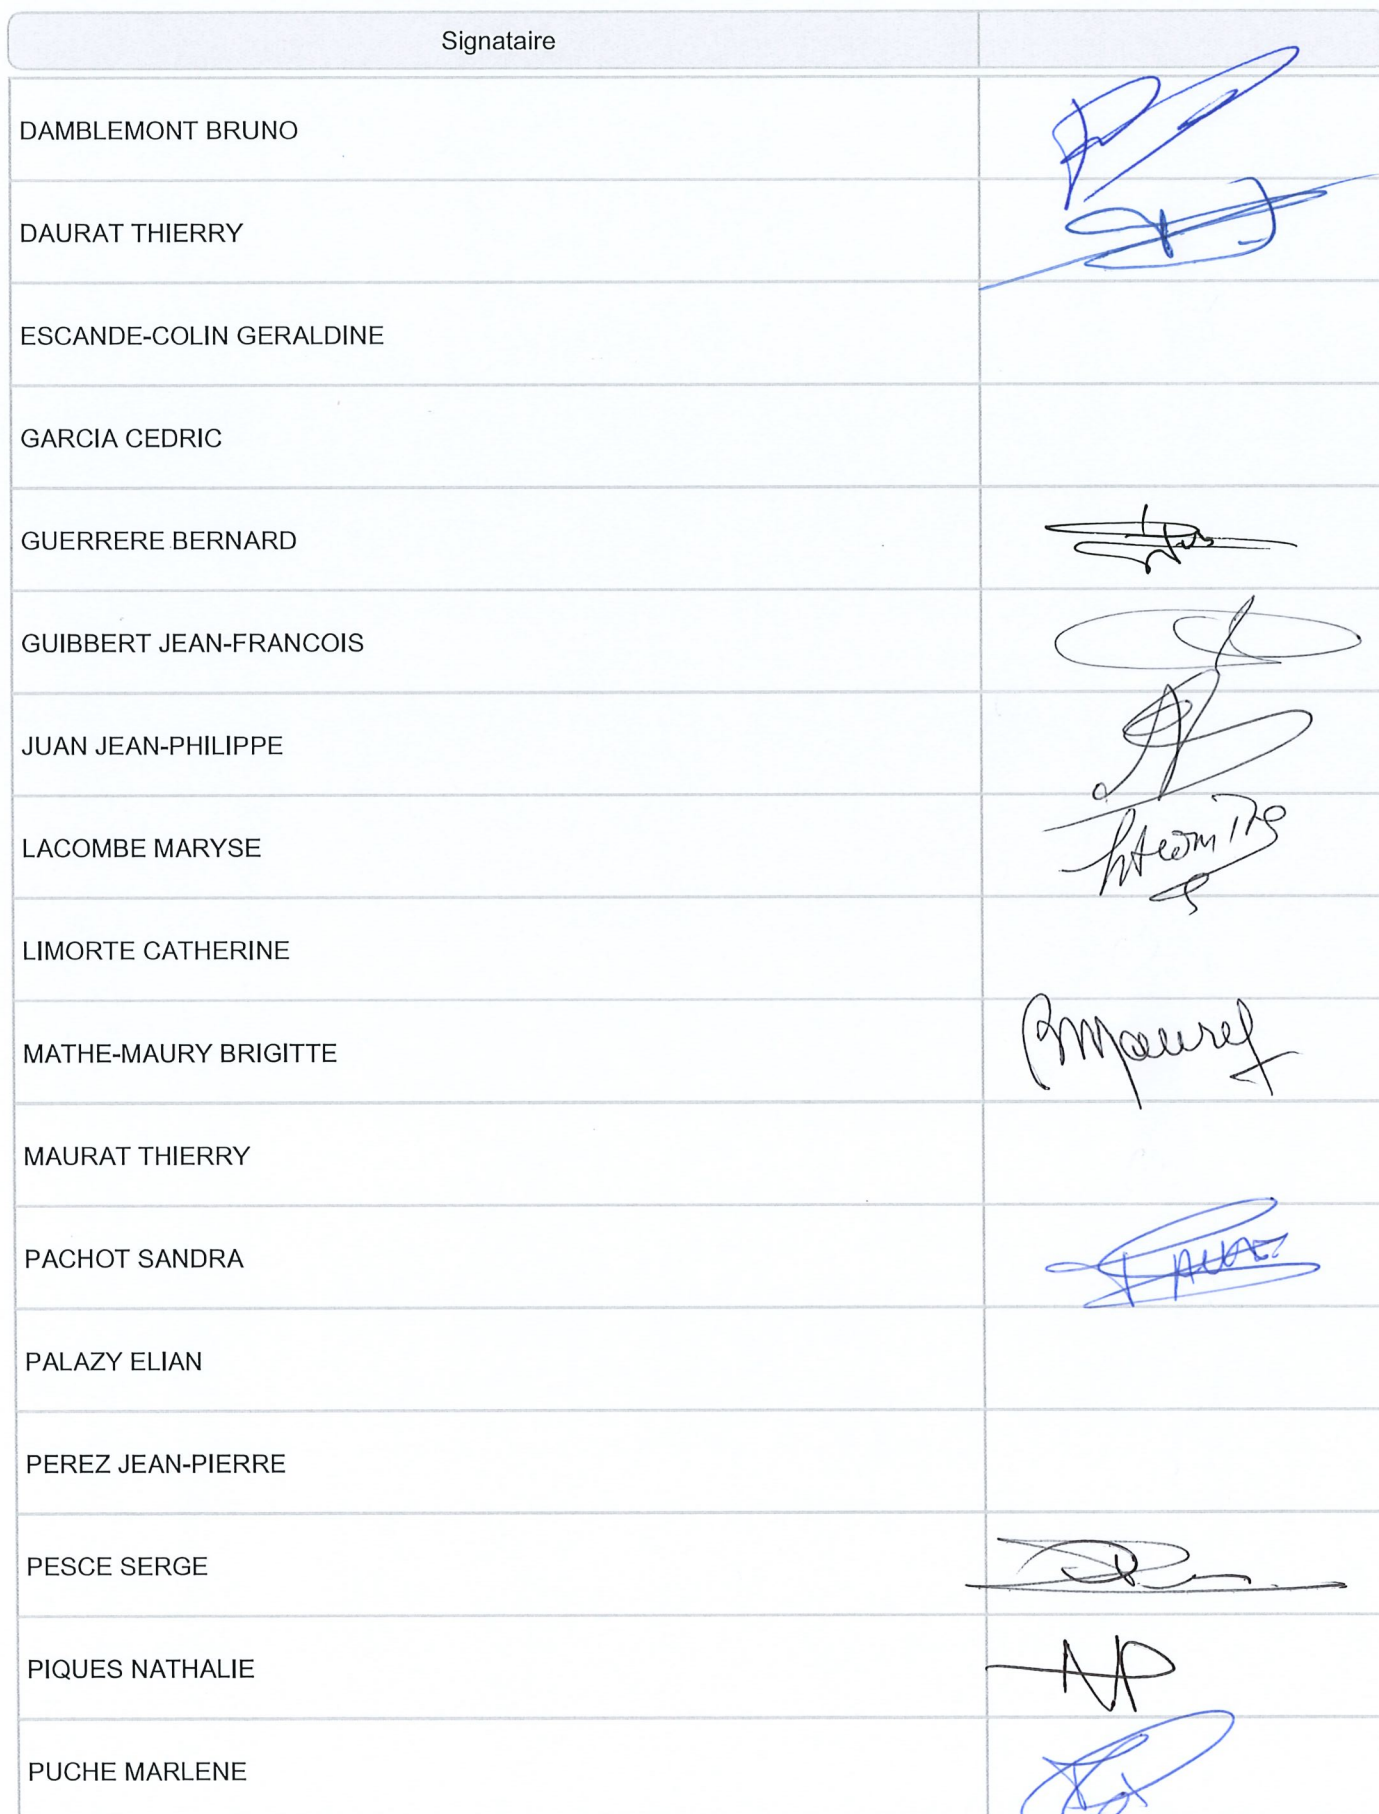 Signataire
DAMBLEMONT BRUNO
DAURAT THIERRY
ESCANDE-COLIN GERALDINE
GARCIA CEDRIC
GUERRERE BERNARD
GUIBBERT JEAN-FRANCOIS
JUAN JEAN-PHILIPPE
LACOMBE MARYSE
LIMORTE CATHERINE
MATHE-MAURY BRIGITTE
MAURAT THIERRY
PACHOT SANDRA
PALAZY ELIAN
PEREZ JEAN-PIERRE
PESCE SERGE
PIQUES NATHALIE NP
PUCHE MARLENE